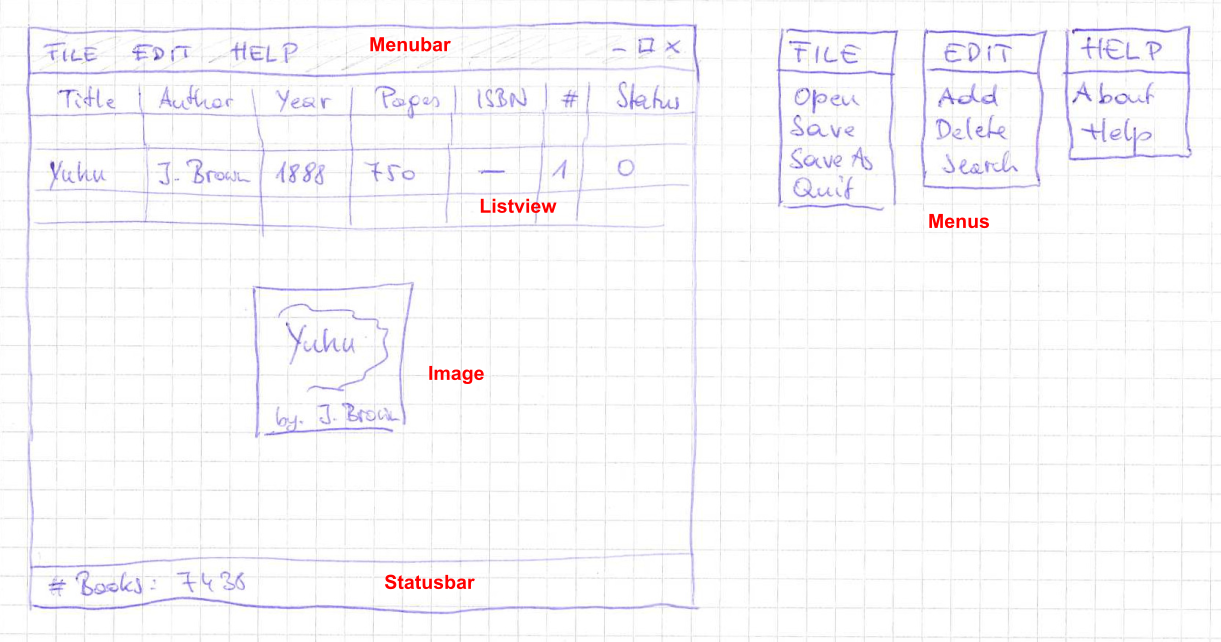 FILE EDIT HELP Menubar - □ X
Title Author Year Pages ISBN # Status
Yuhu J. Brown 1888 750 — 1 0
Listview
Yuhu
by. J. Brown
Image
# Books: 7436 Statusbar
FILE
Open
Save
Save As
Quit
EDIT
Add
Delete
Search
HELP
About
Help
Menus